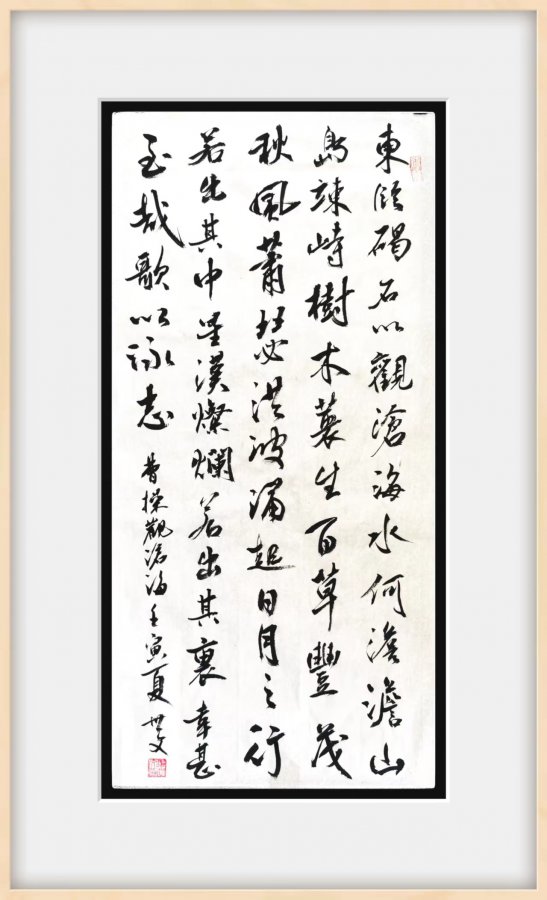 東臨碣石以觀滄海水何澹澹山
島竦峙樹木叢生百草豐茂
秋風蕭瑟洪波涌起日月之行
若出其中星漢燦爛若出其裏幸甚
至哉歌以詠志
曹操觀滄海壬寅夏世文